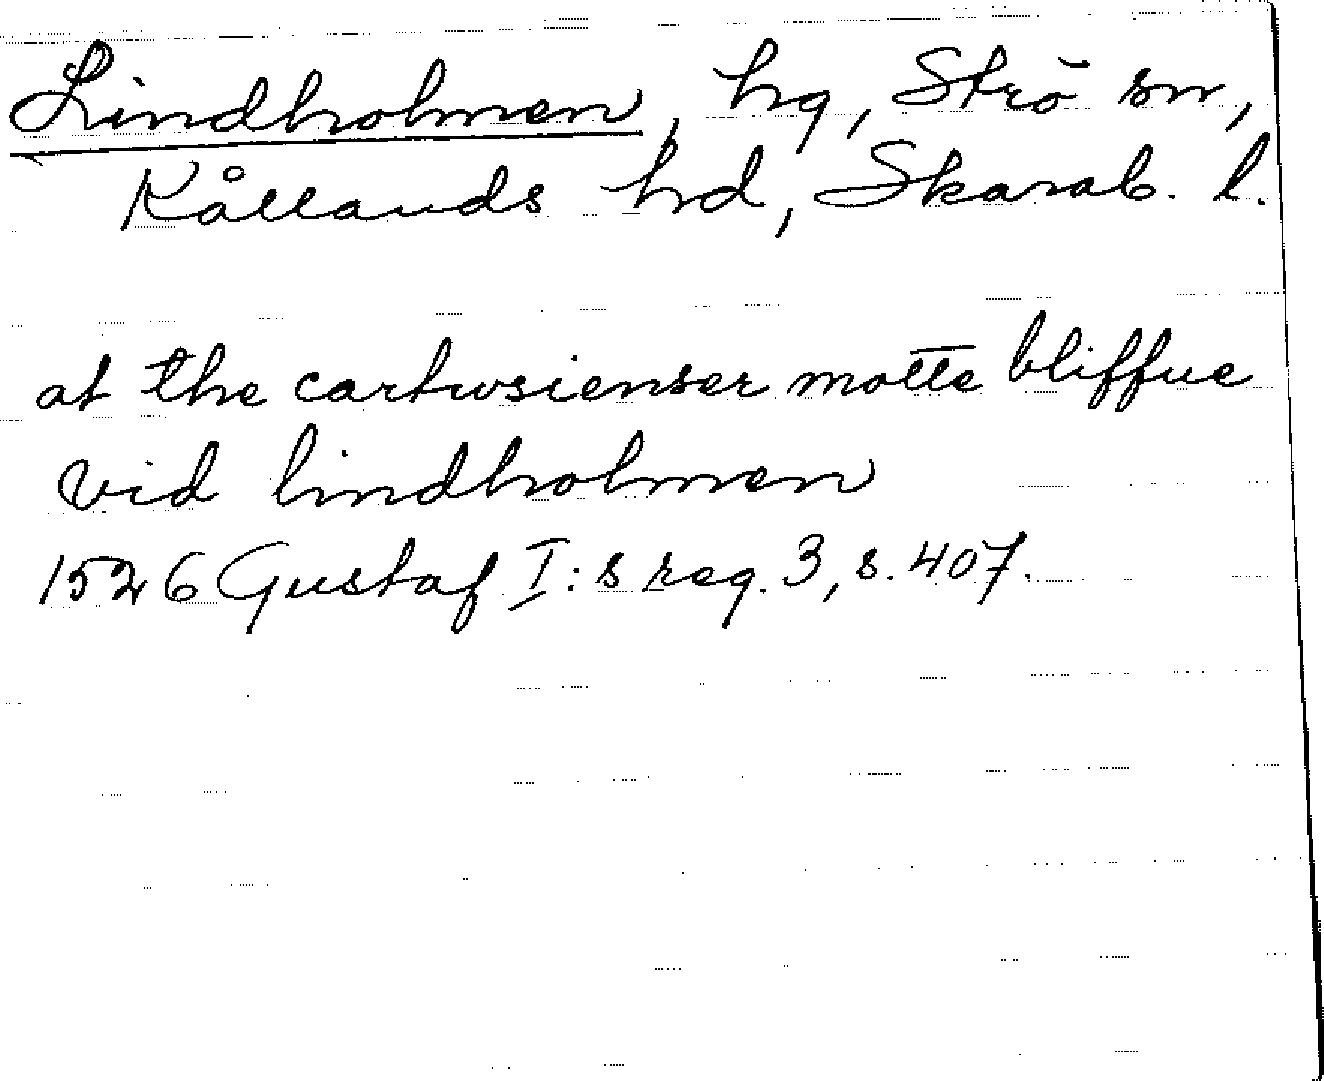 Lindholmen, hg, Strö sn,
Kållands hd, Skarab. l.
at the cartusienser motte bliffue
vid lindholmen
1526 Gustaf I:s reg. 3, s. 407.